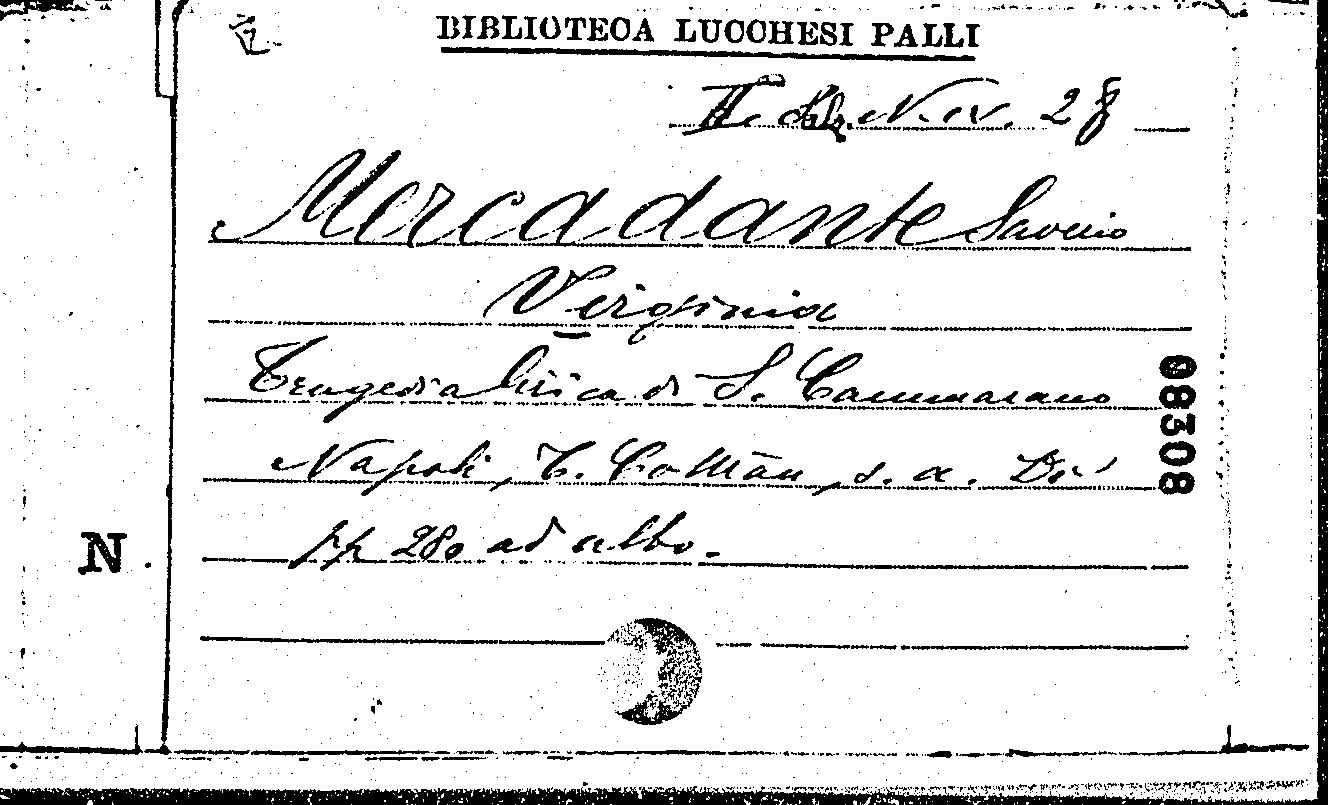 BIBLIOTECA LUCCHESI PALLI
N. IV. 28
Mercadante Saverio
Virginia
Tragedia lirica di S. Cammarano
Napoli, T. Cottrau, s. a. Di
pp 280 ad albo.
08308
N.